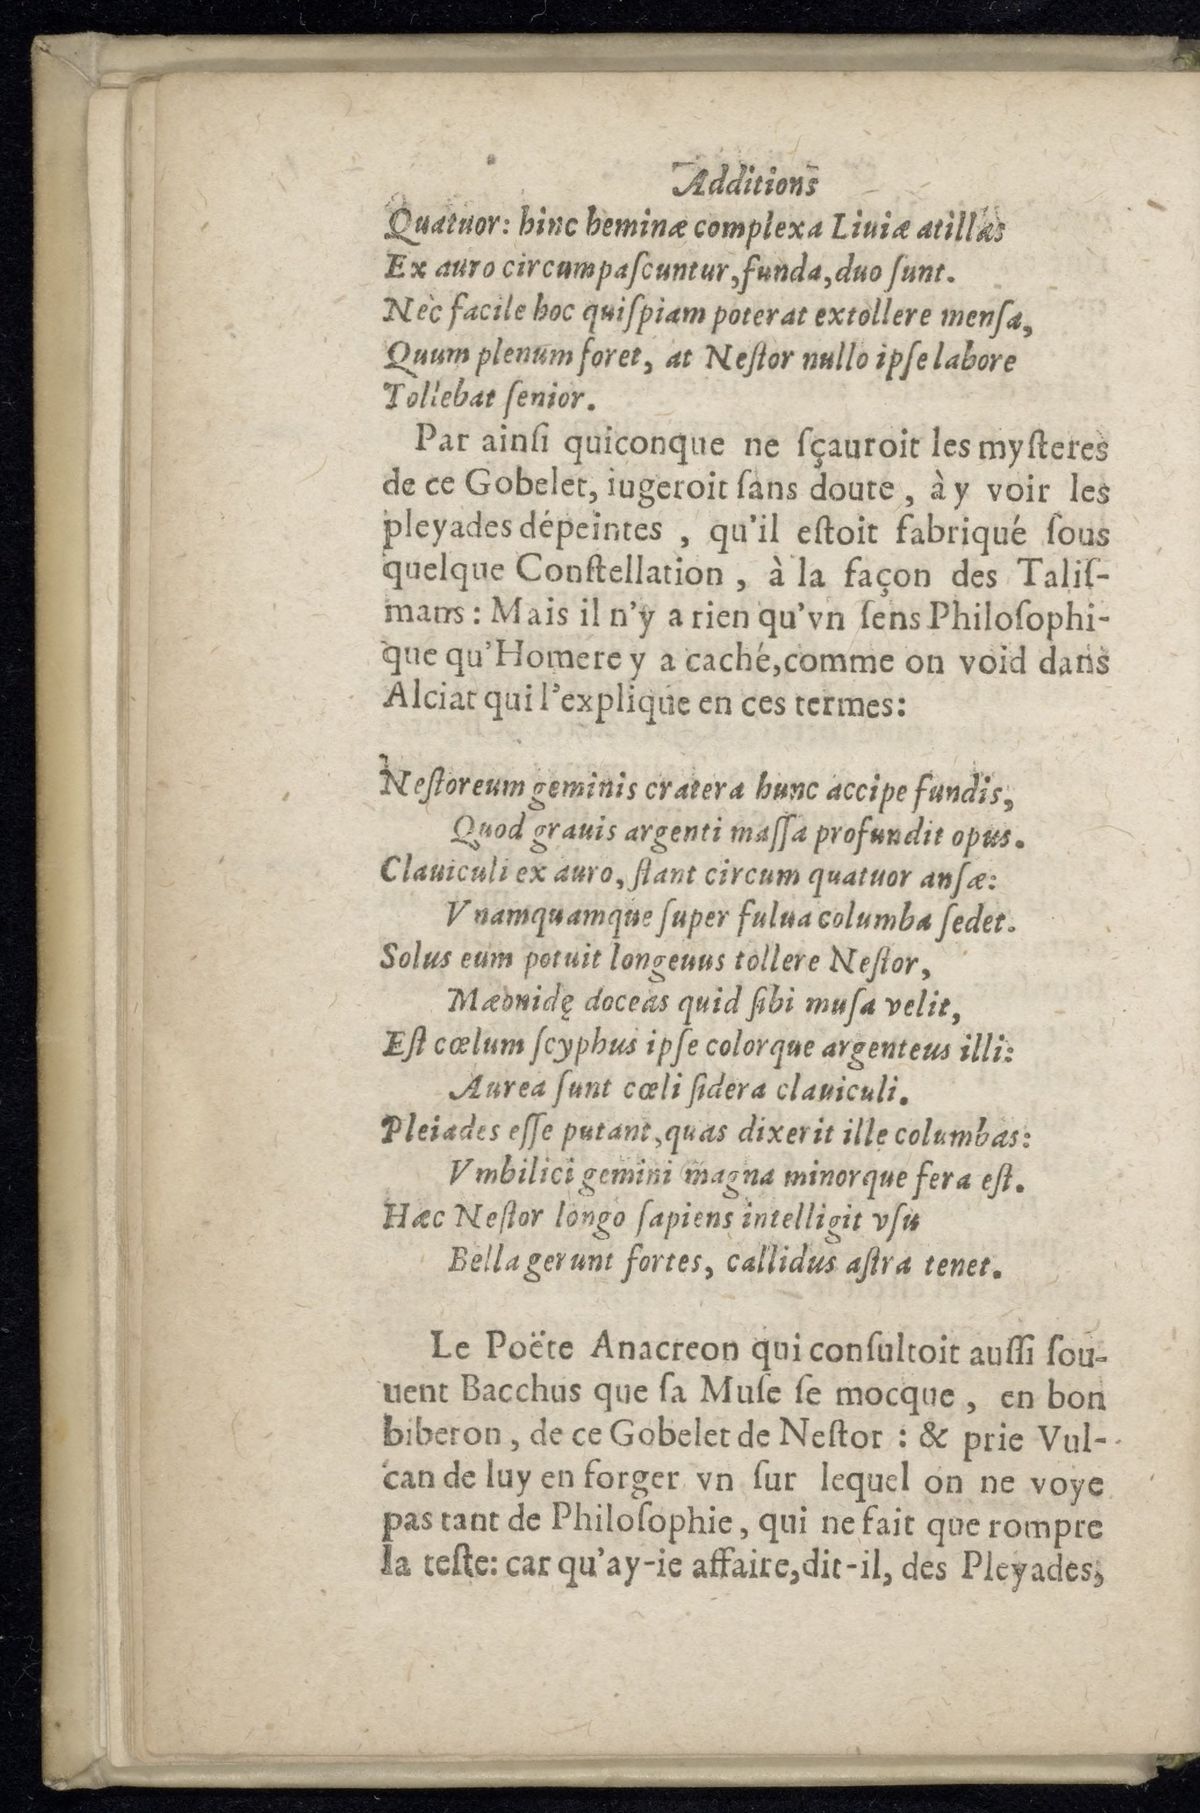 Additions
Quatuor: hinc heminæ complexa Liuiæ atillas
Ex auro circumpaſcuntur, funda, duo ſunt.
Nec facile hoc quiſpiam poterat extollere menſa,
Quum plenum foret, at Neſtor nullo ipſe labore
Tollebat ſenior.
Par ainſi quiconque ne ſçauroit les myſteres
de ce Gobelet, iugeroit ſans doute, à y voir les
pleyades dépeintes, qu'il eſtoit fabriqué ſous
quelque Conſtellation, à la façon des Taliſ-
mans: Mais il n'y a rien qu'vn ſens Philoſophi-
que qu'Homere y a caché, comme on void dans
Alciat qui l'explique en ces termes:
Neſtoreum geminis cratera hunc accipe fundis,
Quod grauis argenti maſſa profundit opus.
Clauiculi ex auro, ſtant circum quatuor anſæ:
Vnamquamque ſuper fulua columba ſedet.
Solus eum potuit longeuus tollere Neſtor,
Mæonidę doceas quid ſibi muſa velit,
Eſt cœlum ſcyphus ipſe colorque argenteus illi:
Aurea ſunt cœli ſidera clauiculi.
Pleiades eſſe putant, quas dixerit ille columbas:
Vmbilici gemini magna minorque fera eſt.
Hæc Neſtor longo ſapiens intelligit vſu
Bella gerunt fortes, callidus aſtra tenet.
Le Poëte Anacreon qui conſultoit auſſi ſou-
uent Bacchus que ſa Muſe ſe mocque, en bon
biberon, de ce Gobelet de Neſtor: & prie Vul-
can de luy en forger vn ſur lequel on ne voye
pas tant de Philoſophie, qui ne fait que rompre
la teſte: car qu'ay-ie affaire, dit-il, des Pleyades,